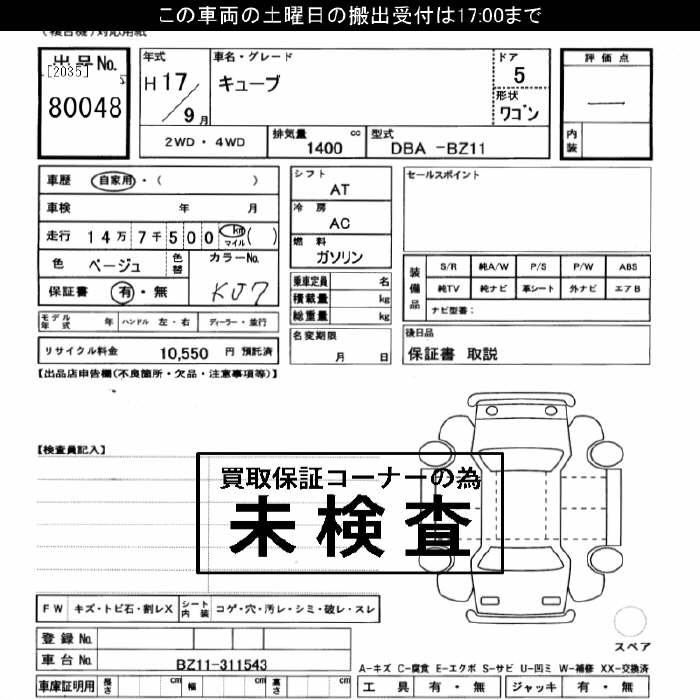 この車両の土曜日の搬出受付は17:00まで
(複合機)対応用紙
出品No.
[2035]
80048
年式
H 17/9月
車名・グレード
キューブ
ドア
5
形状
ワゴン
評価点
—
内装
2WD・4WD
排気量 1400 cc
型式 DBA -BZ11
車歴 自家用・( )
車検 年 月
走行 14万7千500 km マイル ( )
色 ベージュ 色替 カラーNo.
KJ7
保証書 有・無
シフト
AT
冷房
AC
燃料
ガソリン
乗車定員 名
積載量 kg
総重量 kg
セールスポイント
装備品
S/R 純A/W P/S P/W ABS
純TV 純ナビ 革シート 外ナビ エアB
ナビ型番:
モデル年式 年 ハンドル 左・右 ディーラー・並行
リサイクル料金 10,550 円 預託済
名変期限
月 日
後日品
保証書 取説
【出品店申告欄(不良箇所・欠品・注意事項等)】
【検査員記入】
買取保証コーナーの為
未検査
FW キズ・トビ石・割レX シート内装 コゲ・穴・汚レ・シミ・破レ・スレ
登録No.
車台No. BZ11-311543
スペア
A-キズ C-腐食 E-エクボ S-サビ U-凹ミ W-補修 XX-交換済
車庫証明用 長さ cm 幅 cm 高さ cm
工具 有・無 ジャッキ 有・無